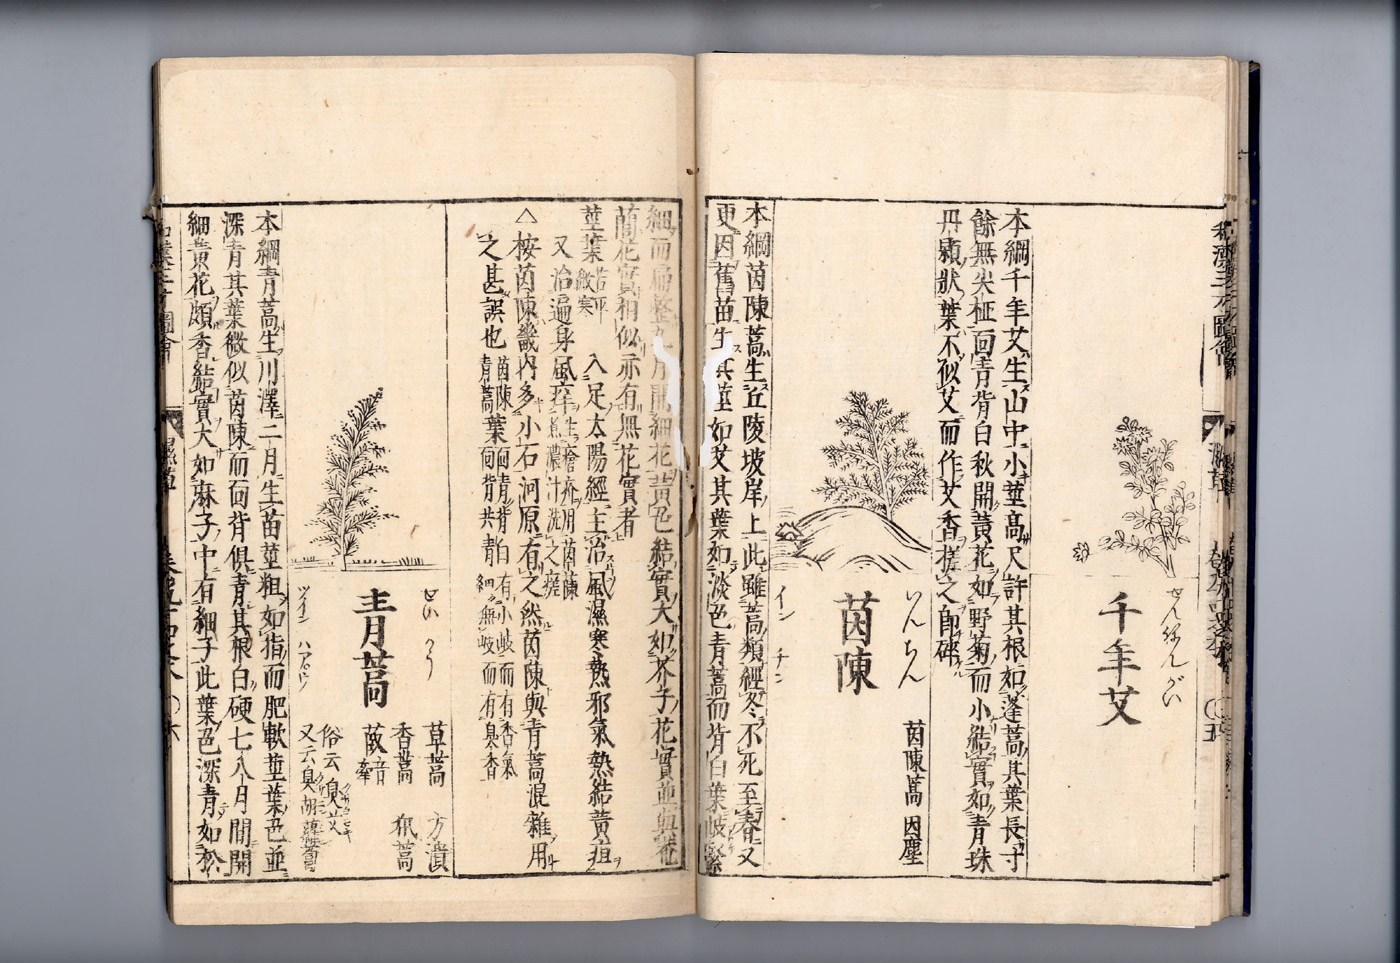 千年艾
せんねんがい
本綱千年艾生山中小莖高尺許其根如蓬蒿其葉長寸
餘無尖椏面青背白秋開黃花如野菊而小結實如青珠
丹顆狀葉不似艾而作艾香搓之即碎
茵陳
いんちん
イン チン
茵陳蒿 因塵
本綱茵陳蒿生丘陵坡岸上此雖蒿類經冬不死至春又
更因舊苗生其莖如艾其葉如淡色青蒿而背白葉岐緊
細而扁整九月開細花黃色結實大如芥子花實並與菴
䕡花實相似亦有無花實者
莖葉 苦平微寒 入足太陽經主治風濕寒熱邪氣熱結黃疸
又治遍身風痒生瘡疥用茵陳煮濃汁洗之瘥
△按茵陳畿内多小石河原有之然茵陳與青蒿混雜用
之甚誤也 茵陳葉面青背白有小岐而有香氣
青蒿葉面背共青細無岐而有臭香
青蒿
せいかう
ツイン ハアウ
草蒿 方潰
香蒿 𦭘蒿
菣 音牽
俗云臭艾
又云臭胡蘿蔔
本綱青蒿生川澤二月生苗莖粗如指而肥軟莖葉色並
深青其葉微似茵陳而面背俱青其根白硬七八月間開
細黃花頗香結實大如麻子中有細子此葉色深青如松